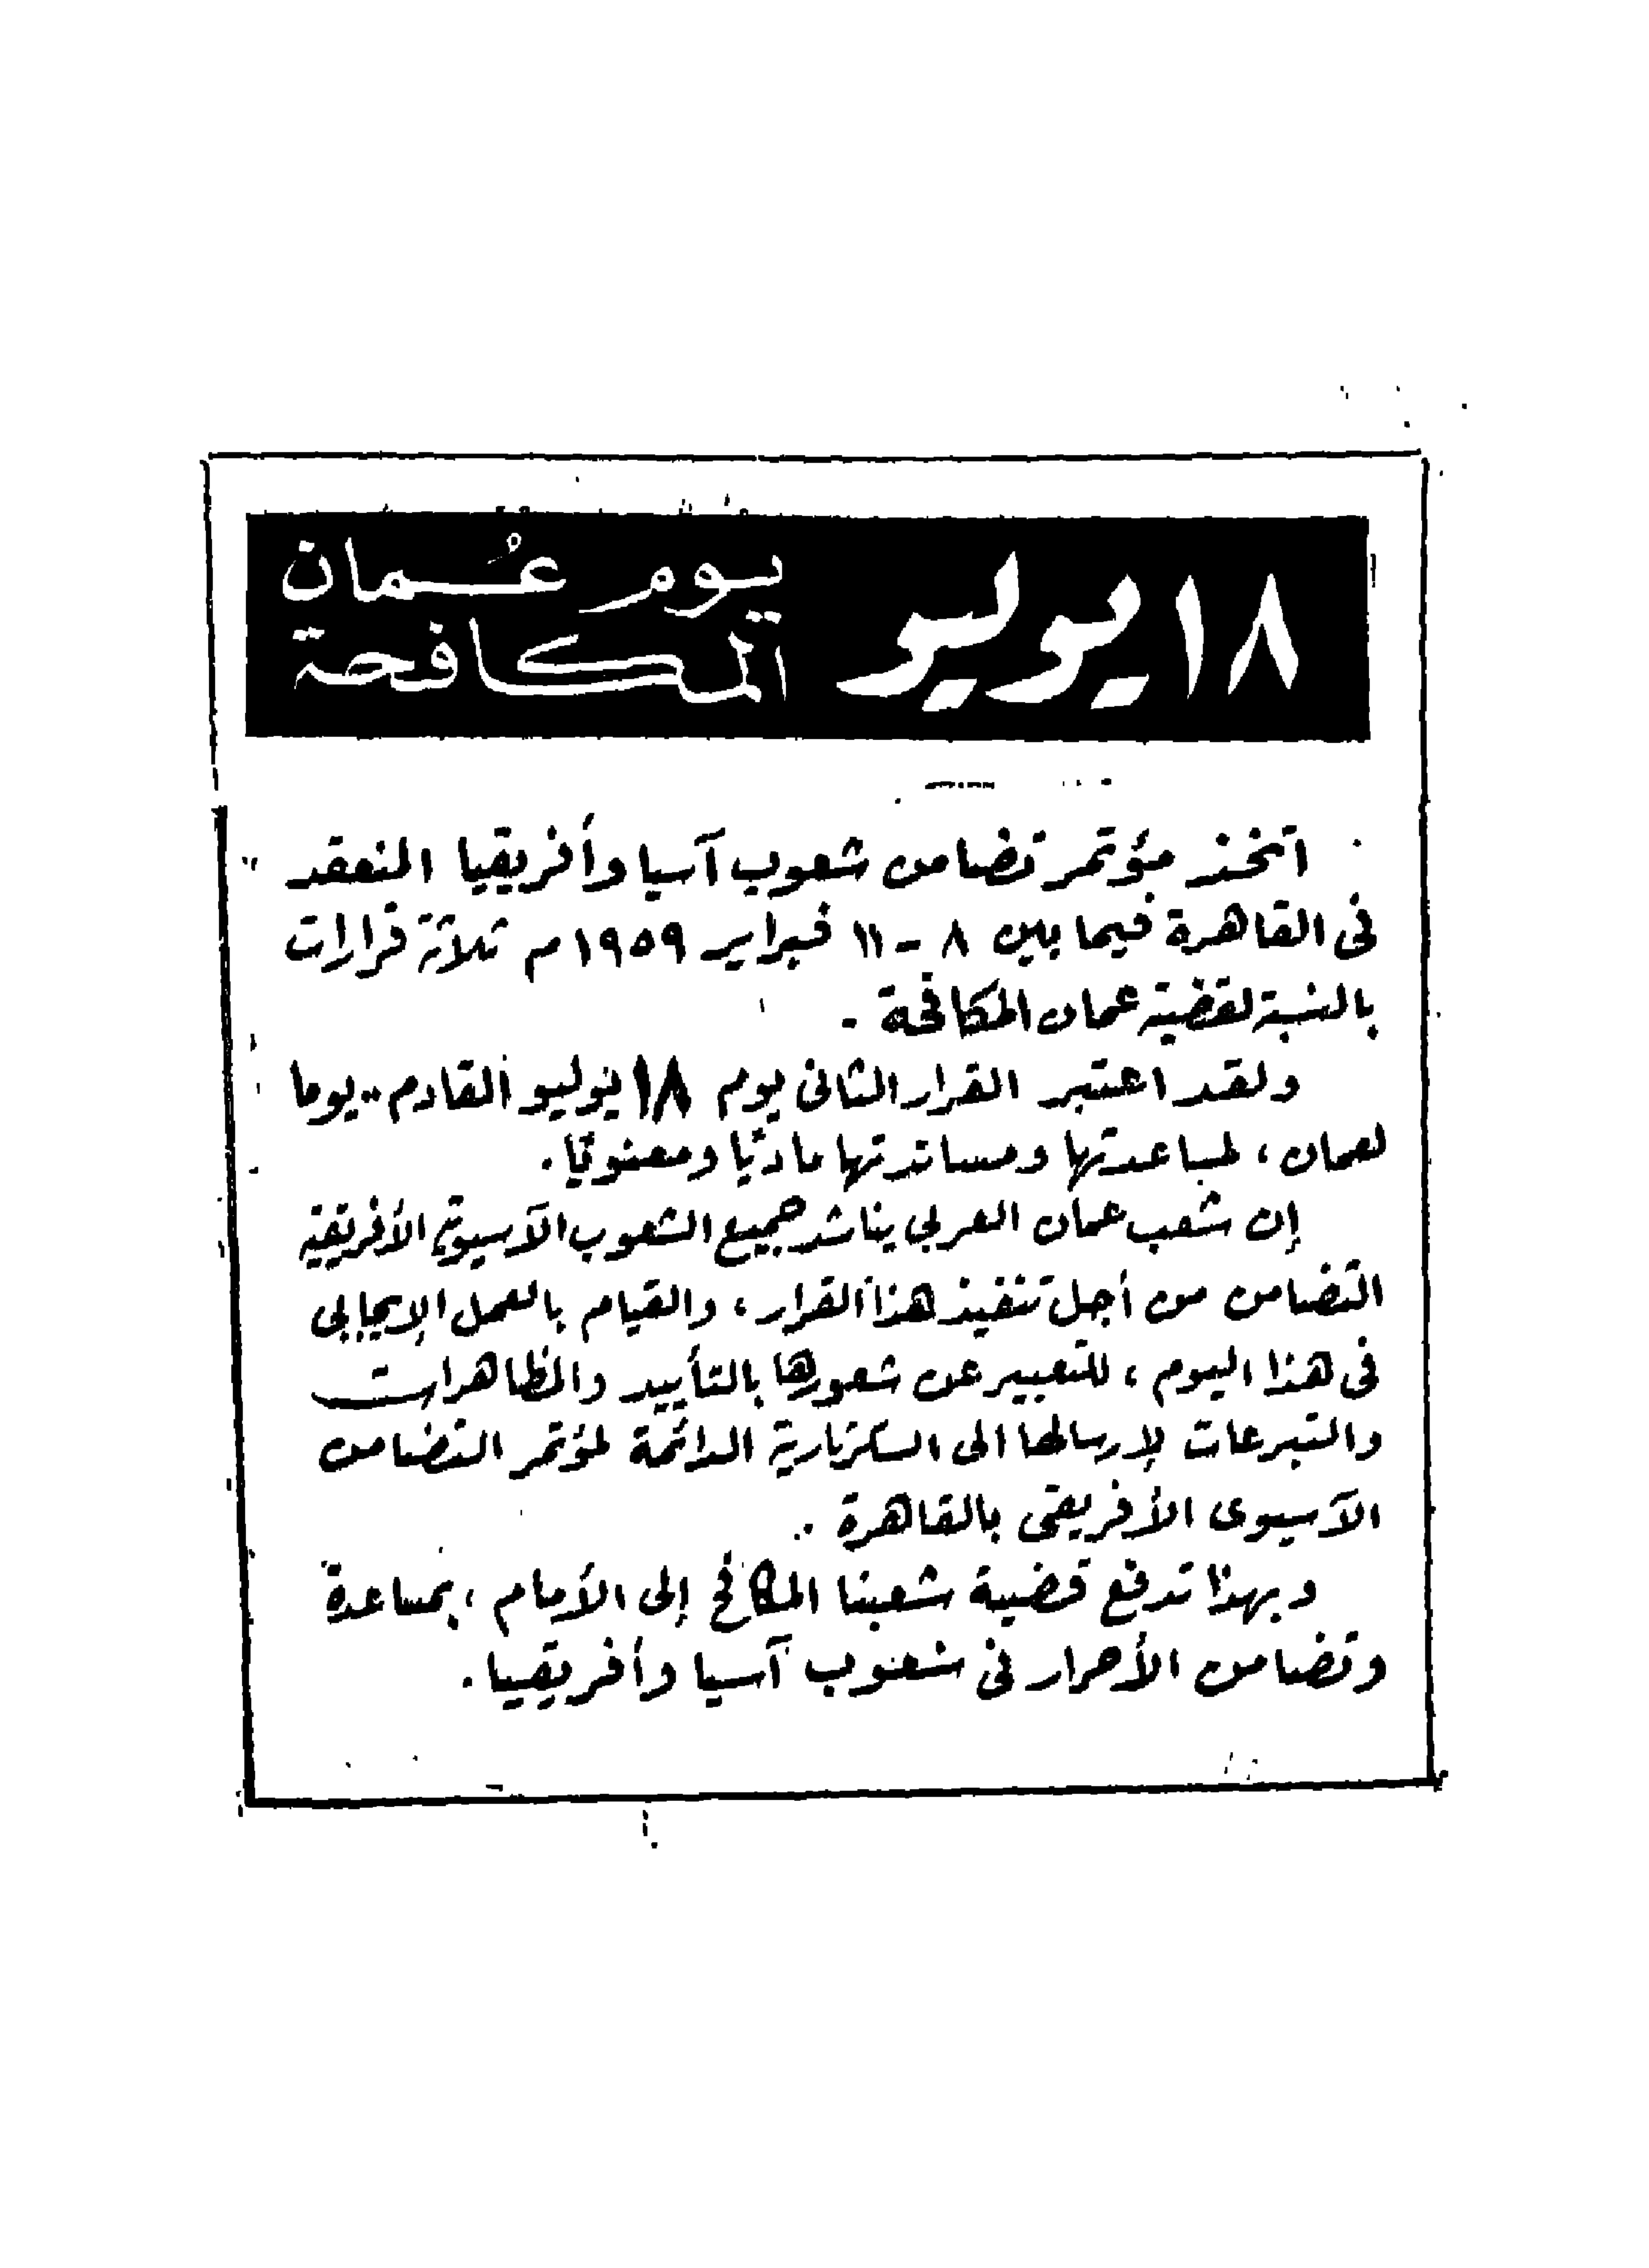 ١٨ يوليو
يوم عُمان
المكافحة
اتخذ مؤتمر تضامن شعوب آسيا وأفريقيا المنعقد
فى القاهرة فيما بين ٨ - ١١ فبراير ١٩٥٩ م ثلاثة قرارات
بالنسبة لقضية عمان المكافحة -
ولقد اعتبر القرار الثانى يوم ١٨ يوليو القادم .. يوما
لعمان ، لمساعدتها ومساندتها ماديًا ومعنويًا .
إن شعب عمان العربى يناشد جميع الشعوب الآسيوية الأفريقية
التضامن من أجل تنفيذ هذا القرار ، والقيام بالعمل الإيجابى
فى هذا اليوم ، للتعبير عن شعورها بالتأييد والمظاهرات
والتبرعات لإرسالها الى السكرتارية الدائمة لمؤتمر التضامن
الآسيوى الأفريقى بالقاهرة ..
وبهذا تدفع قضية شعبنا المكافح إلى الأمام ، بمساعدة
وتضامن الأحرار فى شعوب آسيا وأفريقيا .